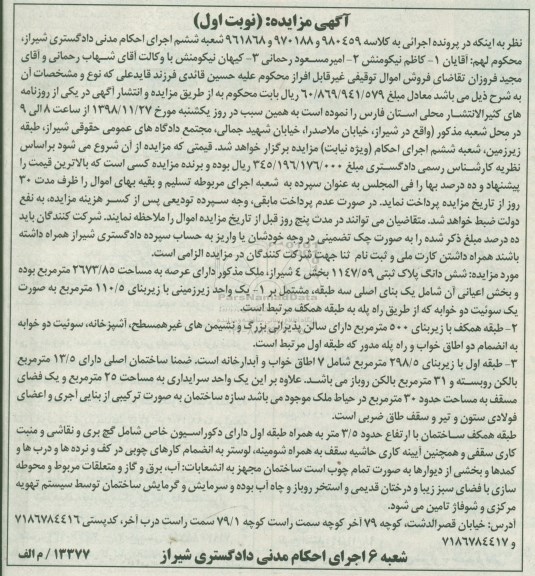 آگهی مزایده: (نوبت اول)
نظر به اینکه در پرونده اجرائی به کلاسه ۹۸۰۴۵۹ و ۹۷۰۱۸۸ و ۹۶۱۸۶۸ شعبه ششم اجرای احکام مدنی دادگستری شیراز،
محکوم لهم: آقایان ۱- کاظم نیکومنش ۲- امیرمسعود رحمانی ۳- کیهان نیکومنش با وکالت آقای شهاب رحمانی و آقای
مجید فروزان تقاضای فروش اموال توقیفی غیرقابل افراز محکوم علیه حسین قائدی فرزند قایدعلی که نوع و مشخصات آن
به شرح ذیل می باشد معادل مبلغ ۶۰/۸۶۹/۹۴۱/۵۷۹ ریال بابت محکوم به از طریق مزایده و انتشار آگهی در یکی از روزنامه
های کثیرالانتشار محلی استان فارس را نموده است به همین سبب در روز یکشنبه مورخ ۱۳۹۸/۱۱/۲۷ از ساعت ۸ الی ۹
در محل شعبه مذکور (واقع در شیراز، خیابان ملاصدرا، خیابان شهید جمالی، مجتمع دادگاه های عمومی حقوقی شیراز، طبقه
زیرزمین، شعبه ششم اجرای احکام (ویژه نیابت) مزایده برگزار خواهد شد. قیمتی که مزایده از آن شروع می شود براساس
نظریه کارشناس رسمی دادگستری مبلغ ۳۴۵/۱۹۶/۱۷۶/۰۰۰ ریال بوده و برنده مزایده کسی است که بالاترین قیمت را
پیشنهاد و ده درصد بها را فی المجلس به عنوان سپرده به شعبه اجرای مربوطه تسلیم و بقیه بهای اموال را ظرف مدت ۳۰
روز از تاریخ مزایده پرداخت نماید. در صورت عدم پرداخت مابقی، وجه سپرده تودیعی پس از کسر هزینه مزایده، به نفع
دولت ضبط خواهد شد. متقاضیان می توانند در مدت پنج روز قبل از تاریخ مزایده اموال را ملاحظه نمایند. شرکت کنندگان باید
ده درصد مبلغ ذکر شده را به صورت چک تضمینی در وجه خودشان یا واریز به حساب سپرده دادگستری شیراز همراه داشته
باشند همراه داشتن کارت ملی و ثبت نام ثنا جهت شرکت کنندگان در مزایده الزامی است.
مورد مزایده: شش دانگ پلاک ثبتی ۱۱۴۷/۵۹ بخش ۴ شیراز، ملک مذکور دارای عرصه به مساحت ۲۶۷۳/۸۵ مترمربع بوده
و بخش اعیانی آن شامل یک بنای اصلی سه طبقه، مشتمل بر ۱- یک واحد زیرزمینی با زیربنای ۱۱۰/۵ مترمربع به صورت
یک سوئیت دو خوابه که از طریق راه پله به طبقه همکف مرتبط است.
۲- طبقه همکف با زیربنای ۵۰۰ مترمربع دارای سالن پذیرائی بزرگ و نشیمن های غیرهمسطح، آشپزخانه، سوئیت دو خوابه
به انضمام دو اطاق خواب و راه پله مدور که طبقه اول مرتبط است.
۳- طبقه اول با زیربنای ۲۹۸/۵ مترمربع شامل ۷ اطاق خواب و آبدارخانه است، ضمنا ساختمان اصلی دارای ۱۳/۵ مترمربع
بالکن روبسته و ۳۱ مترمربع بالکن روباز می باشد. علاوه بر این یک واحد سرایداری به مساحت ۲۵ مترمربع و یک فضای
مسقف به مساحت حدود ۳۰ مترمربع در حیاط ملک موجود می باشد سازه ساختمان به صورت ترکیبی از بنایی آجری و اعضای
فولادی ستون و تیر و سقف طاق ضربی است.
طبقه همکف ساختمان با ارتفاع حدود ۳/۵ متر به همراه طبقه اول دارای دکوراسیون خاص شامل گچ بری و نقاشی و منبت
کاری سقفی و همچنین آیینه کاری حاشیه سقف به همراه شومینه، لوستر به انضمام کارهای چوبی در کف و نرده ها و درب ها و
کمدها و بخشی از دیوارها به صورت تمام چوب است ساختمان مجهز به انشعابات: آب، برق و گاز و متعلقات مربوط و محوطه
سازی با فضای سبز زیبا و درختان قدیمی و استخر روباز و چاه آب بوده و سرمایش و گرمایش ساختمان توسط سیستم تهویه
مرکزی و شوفاژ تامین می شود.
آدرس: خیابان قصرالدشت، کوچه ۷۹ آخر کوچه سمت راست کوچه ۷۹/۱ سمت راست درب آخر، کدپستی ۷۱۸۶۷۸۴۴۱۶
و ۷۱۸۶۷۸۴۴۱۷
شعبه ۶ اجرای احکام مدنی دادگستری شیراز
۱۳۳۷۷ / م الف